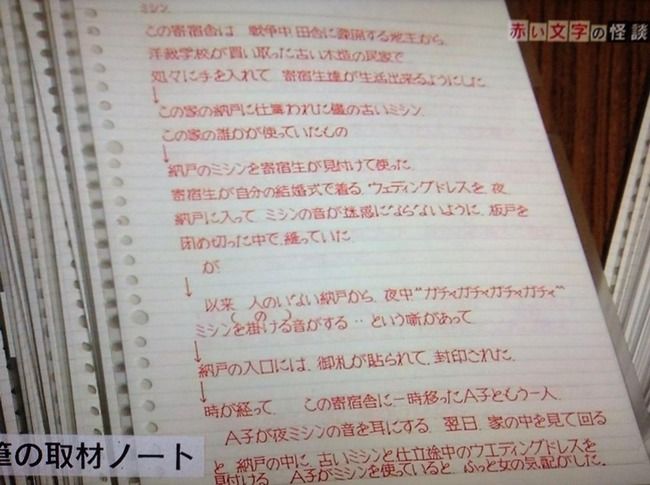 赤い文字の怪談
ミシン
この寄宿舎は 戦争中 田舎に疎開する地主から、
洋裁学校が買い取った古い木造の民家で
処々に手を入れて 寄宿生達が生活出来るようにした
↓
この家の納戸に仕舞われた 古いミシン
この家の誰かが使っていたもの
↓
納戸のミシンを寄宿生が見付けて使った
寄宿生が自分の結婚式で着る ウェディングドレスを 夜
納戸に入って ミシンの音が迷惑にならないように 板戸を
閉め切った中で、縫っていた
が
↓
以来 人のいない納戸から、夜中"ガチィガチィガチィガチィ"
(の)
ミシンを掛ける音がする‥という噂があって
↓
納戸の入口には、御札が貼られて、封印された
↓
時が経って、 この寄宿舎に一時移ったA子ともう一人、
A子が夜ミシンの音を耳にする 翌日、家の中を見て回る
と、納戸の中に、古いミシンと仕立途中のウエディングドレスを
見付ける A子がミシンを使っていると、ふっと女の気配がした、
筆の取材ノート